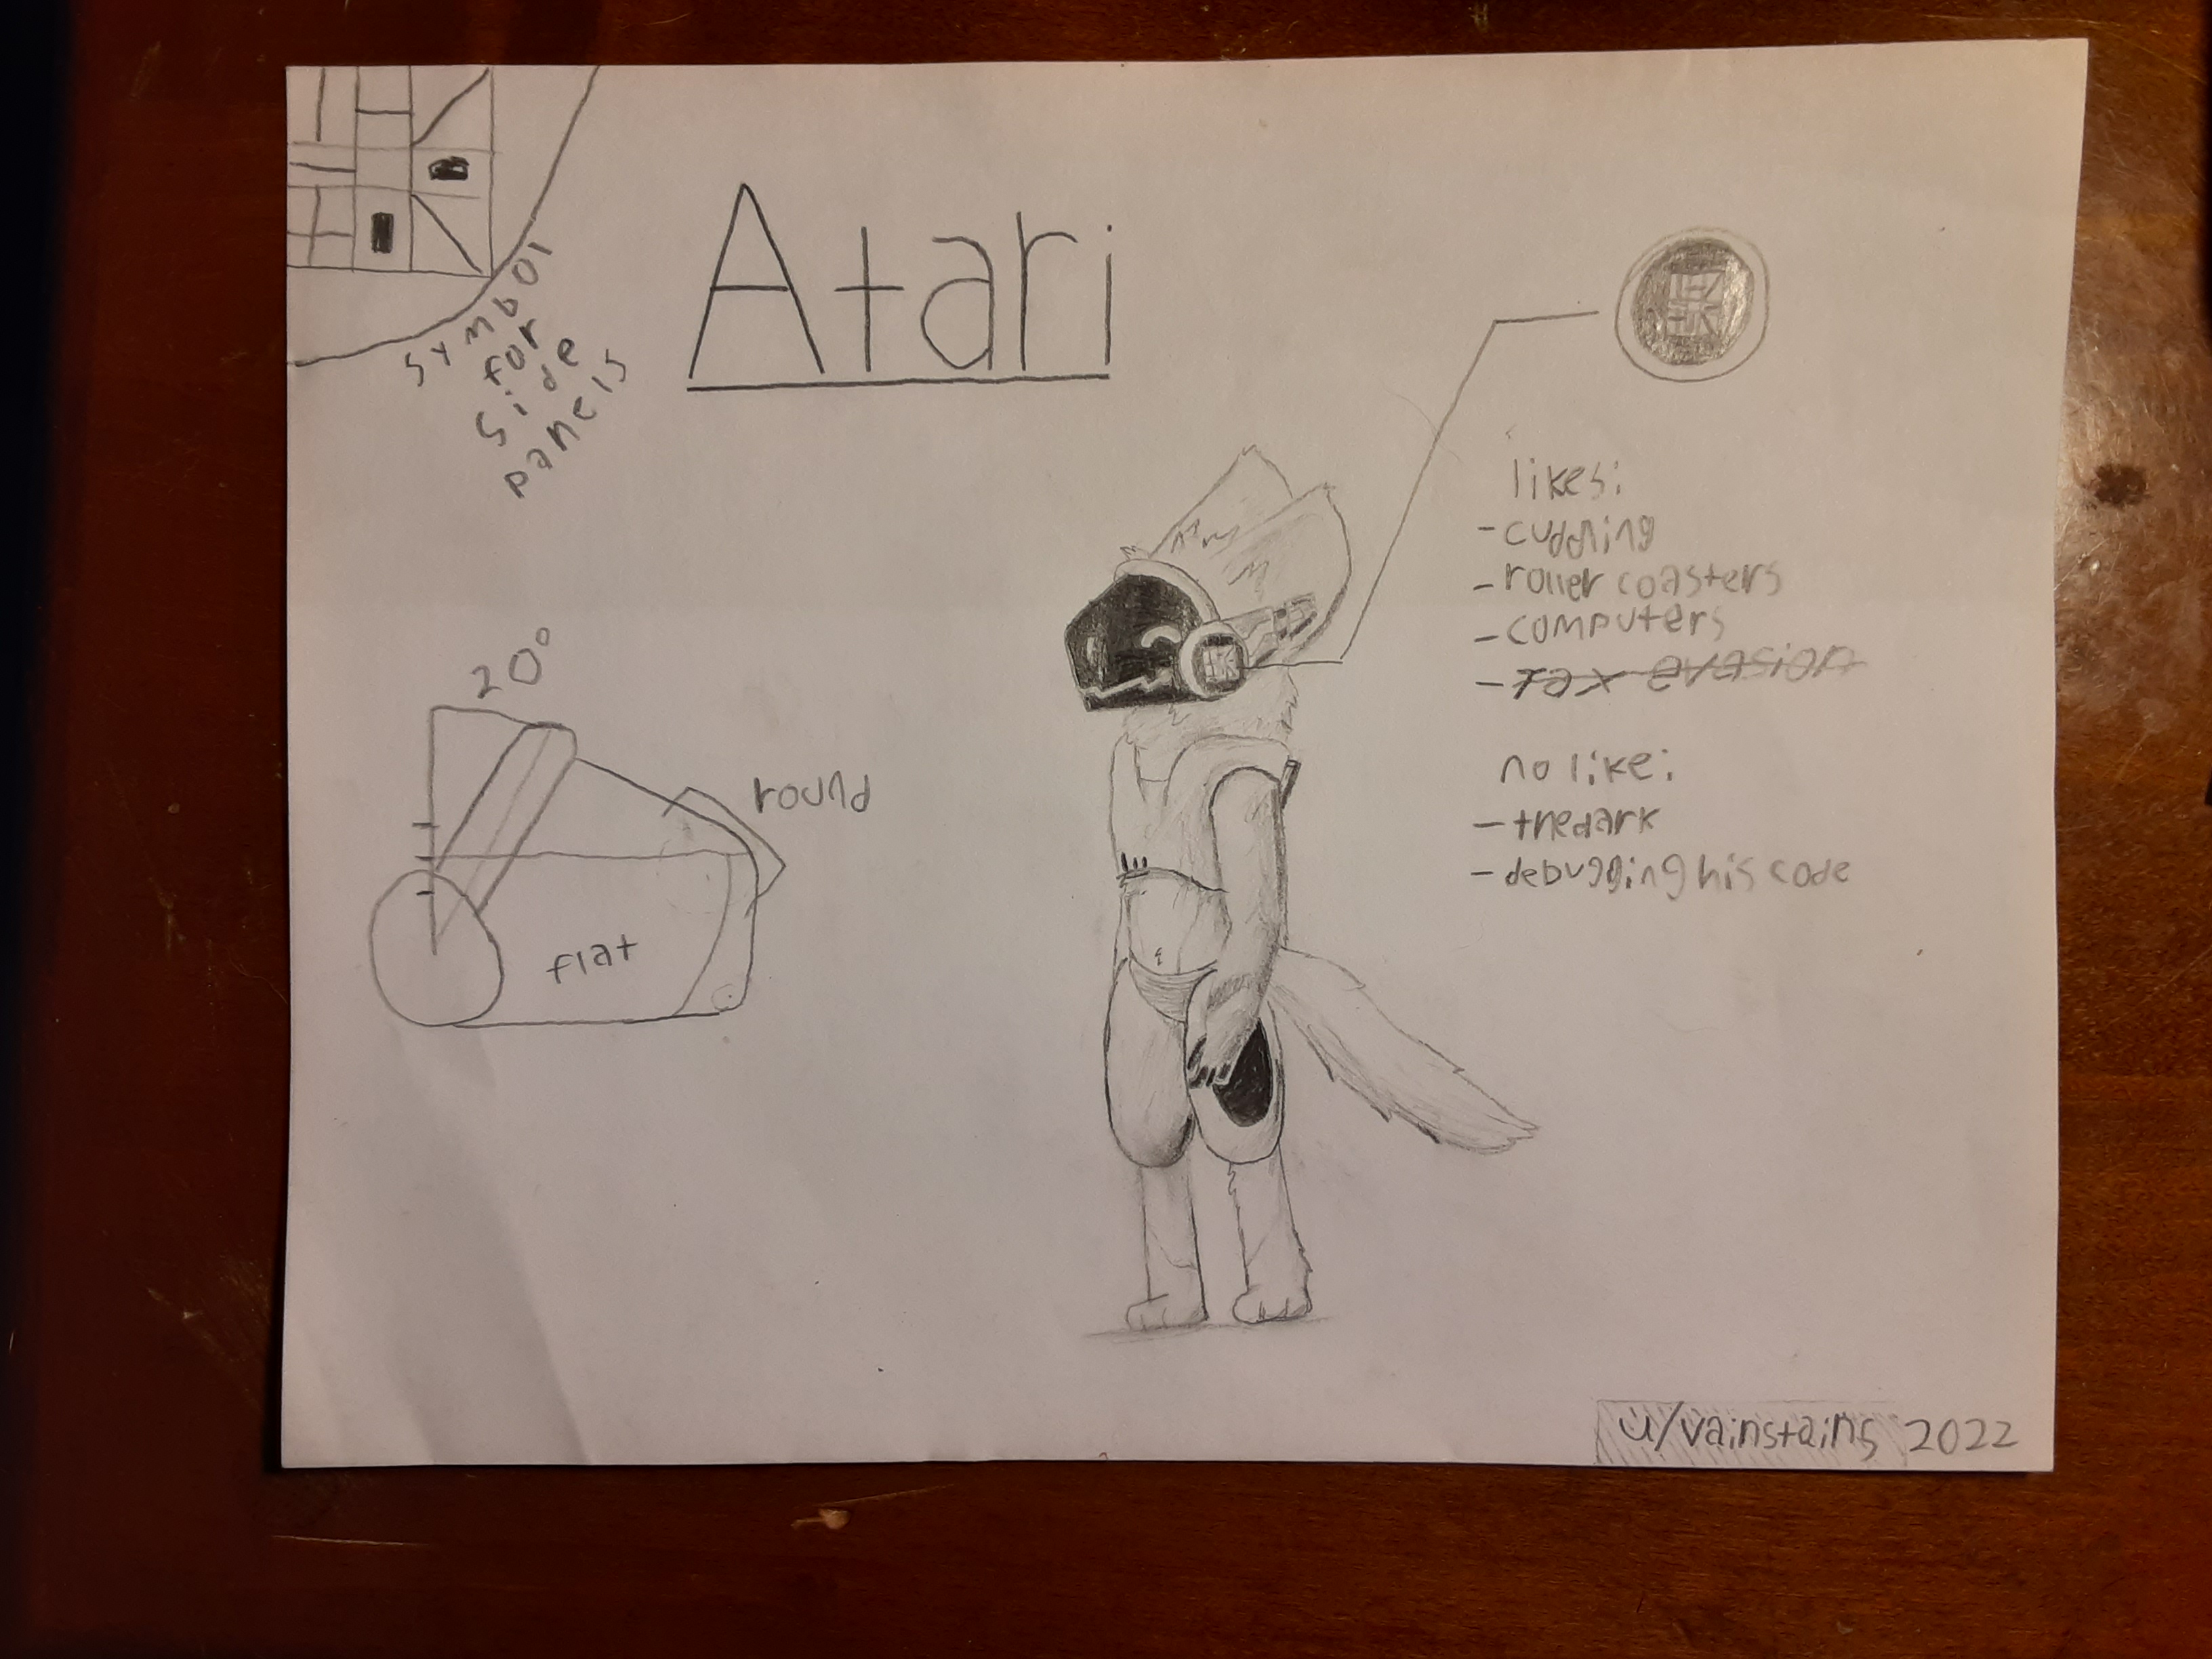 Atari
symbol
for
side
panels
likes:
- cuddling
- roller coasters
- computers
- Tax evasion
no like:
- the dark
- debugging his code
20°
round
flat
u/vainstains 2022